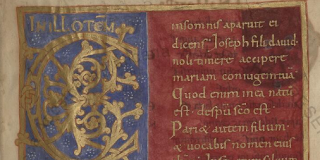 IN ILLO TEM
insomnis aparuit ei
dicens. Ioseph fili david
noli timere accipere
mariam coniugem tuam
Quod enim in ea natu
est. de spu sco est.
Pari& autem filium.
& vocabis nomen eius